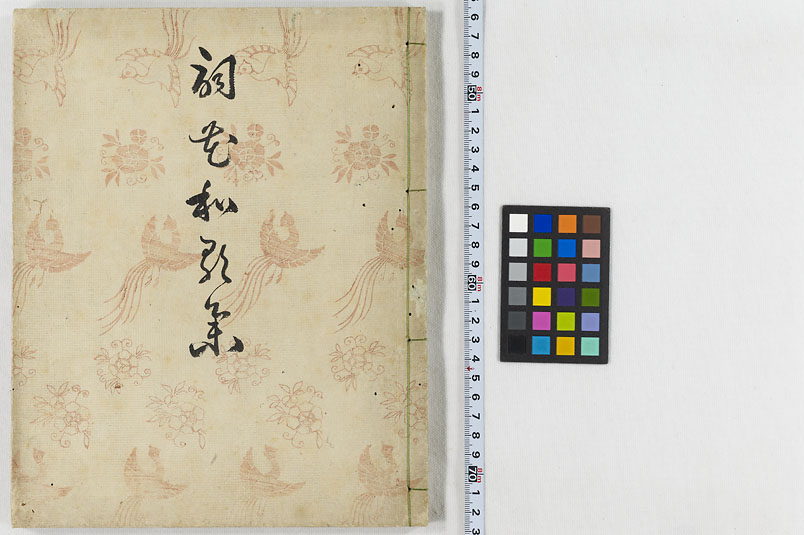 詞花和歌集
6 7 8 9 50 1 2 3 4 5 6 7 8 9 60 1 2 3 4 5 6 7 8 9 70 1 2 3